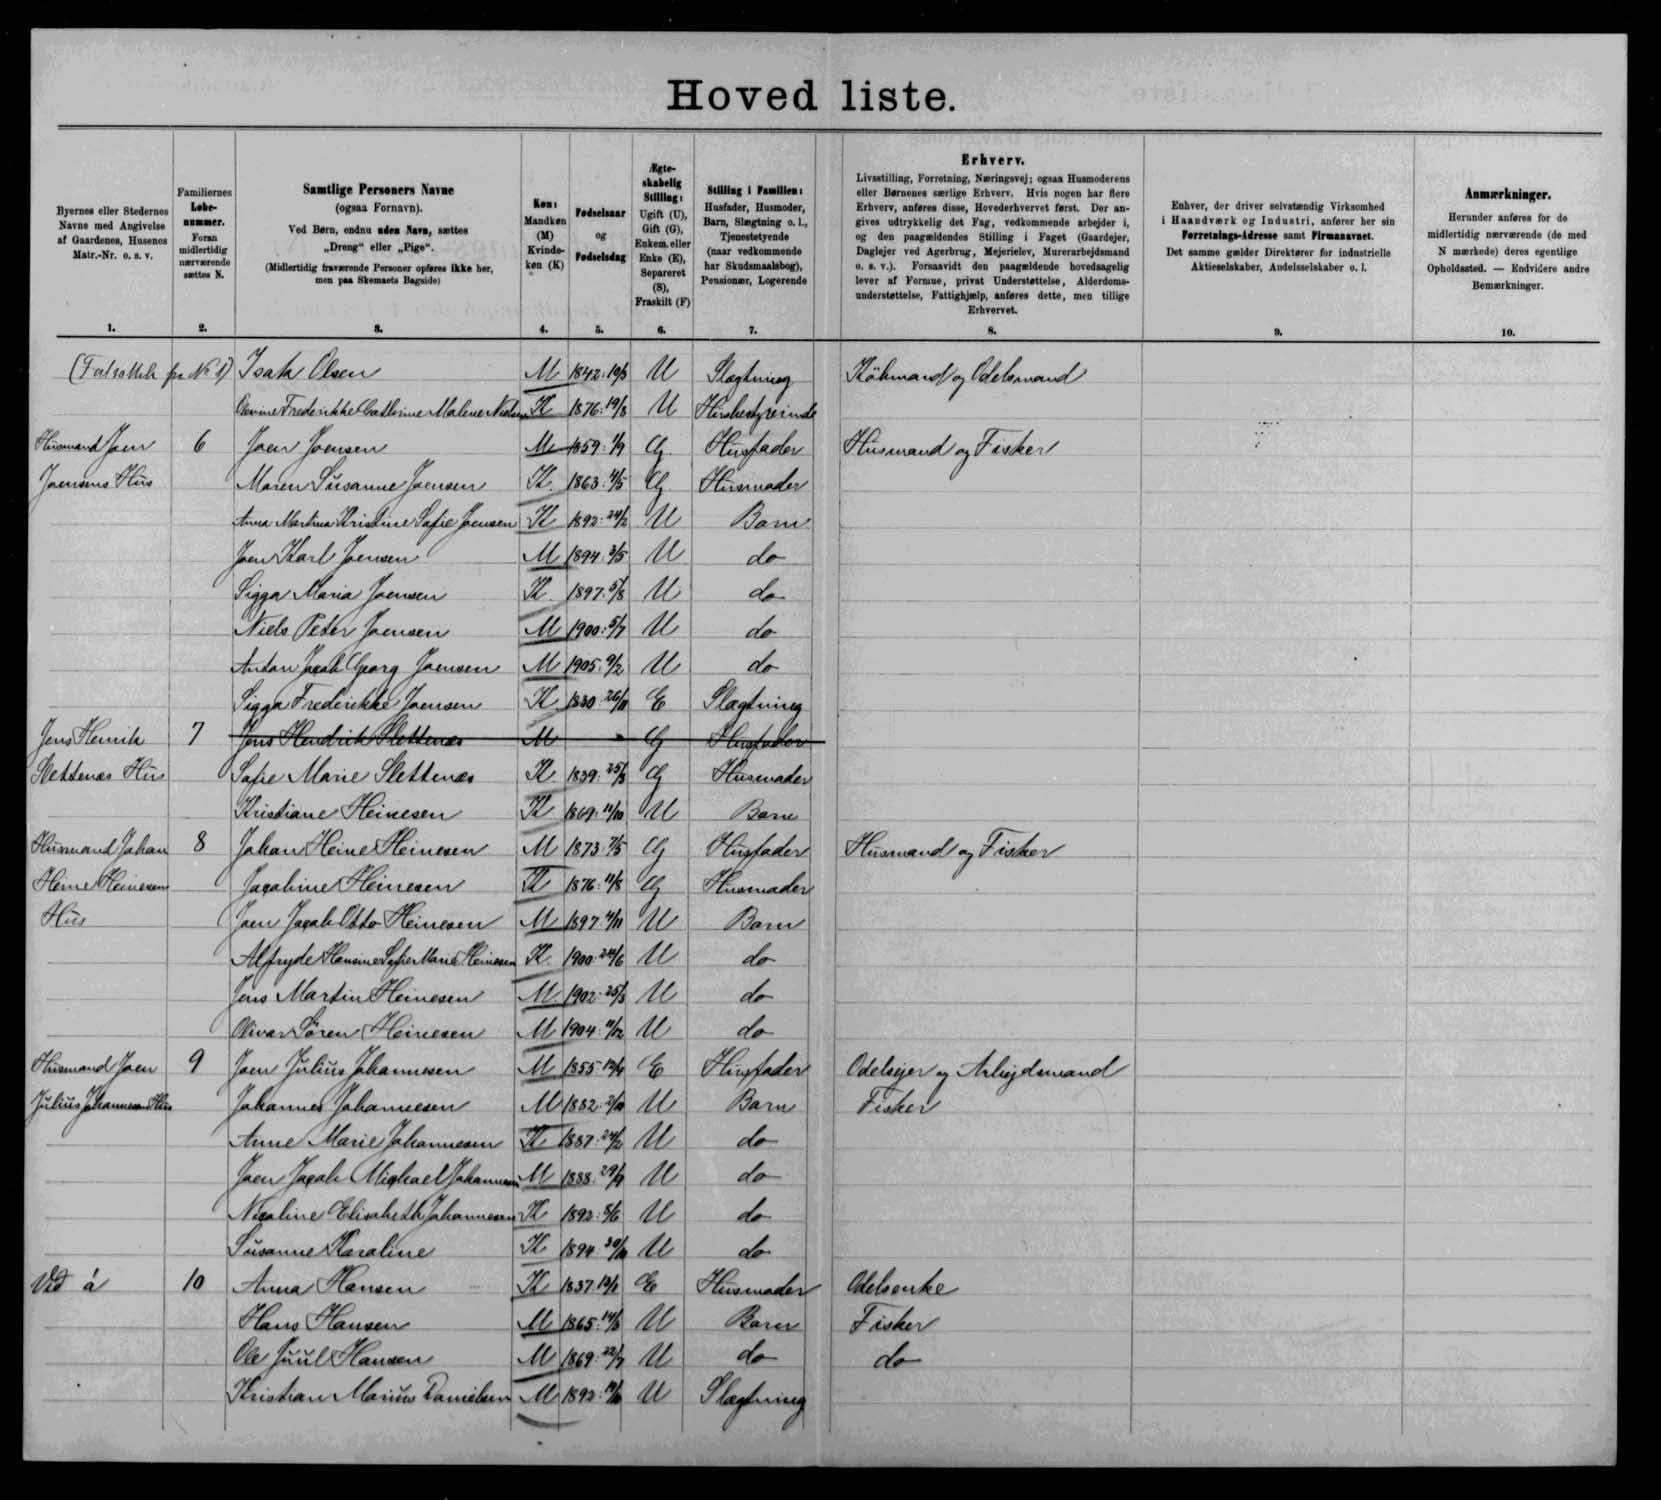 Hovedliste.
Byernes eller Stedernes
Navne med Angivelse
af Gaardenes, Husenes
Matr.-Nr. o. s. v.
1.
Familiernes
Løbe-
nummer.
Foran
midlertidig
nærværende
sættes N.
2.
Samtlige Personers Navne
(ogsaa Fornavn).
Ved Børn, endnu uden Navn, sættes
„Dreng“ eller „Pige“.
(Midlertidig fraværende Personer opføres ikke her,
men paa Skemaets Bagside)
3.
Køn:
Mandkøn
(M)
Kvinde-
køn (K)
4.
Fødselsaar
og
Fødselsdag
5.
Ægte-
skabelig
Stilling:
Ugift (U),
Gift (G),
Enkem. eller
Enke (E),
Separeret
(S),
Fraskilt (F)
6.
Stilling i Familien:
Husfader, Husmoder,
Barn, Slægtning o. l.,
Tjenestetyende
(naar vedkommende
har Skudsmaalsbog),
Pensionær, Logerende
7.
Erhverv.
Livsstilling, Forretning, Næringsvej; ogsaa Husmoderens
eller Børnenes særlige Erhverv. Hvis nogen har flere
Erhverv, anføres disse, Hovederhvervet først. Der an-
gives udtrykkelig det Fag, vedkommende arbejder i,
og den paagældendes Stilling i Faget (Gaardejer,
Daglejer ved Agerbrug, Mejerielev, Murerarbejdsmand
o. s. v.). Forsaavidt den paagældende hovedsagelig
lever af Formue, privat Understøttelse, Alderdoms-
understøttelse, Fattighjælp, anføres dette, men tillige
Erhvervet.
8.
Enhver, der driver selvstændig Virksomhed
i Haandværk og Industri, anfører her sin
Forretnings-Adresse samt Firmanavnet.
Det samme gælder Direktører for industrielle
Aktieselskaber, Andelsselskaber o. l.
9.
Anmærkninger.
Herunder anføres for de
midlertidig nærværende (de med
N mærkede) deres egentlige
Opholdssted. — Endvidere andre
Bemærkninger.
10.
(Fortsættelse fra No 1) Isak Olsen M 1842: U Slægtning Købmand og Odelsmand
Olevine Frederikke Cathrine Malene Nielsen K 1876: 19/8 U Husbestyrerinde
Husmand Joen 6 Joen Joensen M 1859: 1/9 G Husfader Husmand og Fisker
Joensens Hus Maren Susanne Joensen K 1863: 4/5 G Husmoder
Anna Martina Kristine Sofie Joensen K 1892: 24/2 U Barn
Joen Karl Joensen M 1894: 3/5 U do
Sigga Maria Joensen K 1897: 5/8 U do
Niels Peter Joensen M 1900: 5/7 U do
Anton Jacob Georg Joensen M 1905: 9/2 U do
Sigga Frederikke Joensen K 1830: 26/11 E Slægtning
Jens Henrik 7 Jens Hendrik Slettenæs M G Husfader
Slettenæs Hus Sofie Marie Slettenæs K 1839: 25/3 G Husmoder
Kristiane Heinesen K 1869: 11/10 U Barn
Husmand Johan 8 Johan Heine Heinesen M 1873: 7/5 G Husfader Husmand og Fisker
Heine Heinesens Jacobine Heinesen K 1876: 11/8 G Husmoder
Hus Joen Jacob Otto Heinesen M 1897: 4/11 U Barn
Alfryde Hansine Sofie Marie Heinesen K 1900: 24/6 U do
Jens Martin Heinesen M 1902: 25/3 U do
Olivar Søren Heinesen M 1904: 11/12 U do
Husmand Joen 9 Joen Julius Johannesen M 1855: E Husfader Odelsejer og Arbejdsmand
Julius Johannesens Hus Johannes Johannesen M 1882: U Barn Fisker
Anne Marie Johannesen K 1887: 24/2 U do
Joen Jacob Michael Johannesen M 1888: U do
Nicoline Elisabeth Johannesen K 1892: 8/6 U do
Susanne Karoline K 1894: U do
Við á 10 Anna Hansen K 1837: E Husmoder Odelsenke
Hans Hansen M 1865: U Barn Fisker
Ole Juul Hansen M 1869: 22/7 U do do
Kristian Marius Danielsen M 1892: U Slægtning